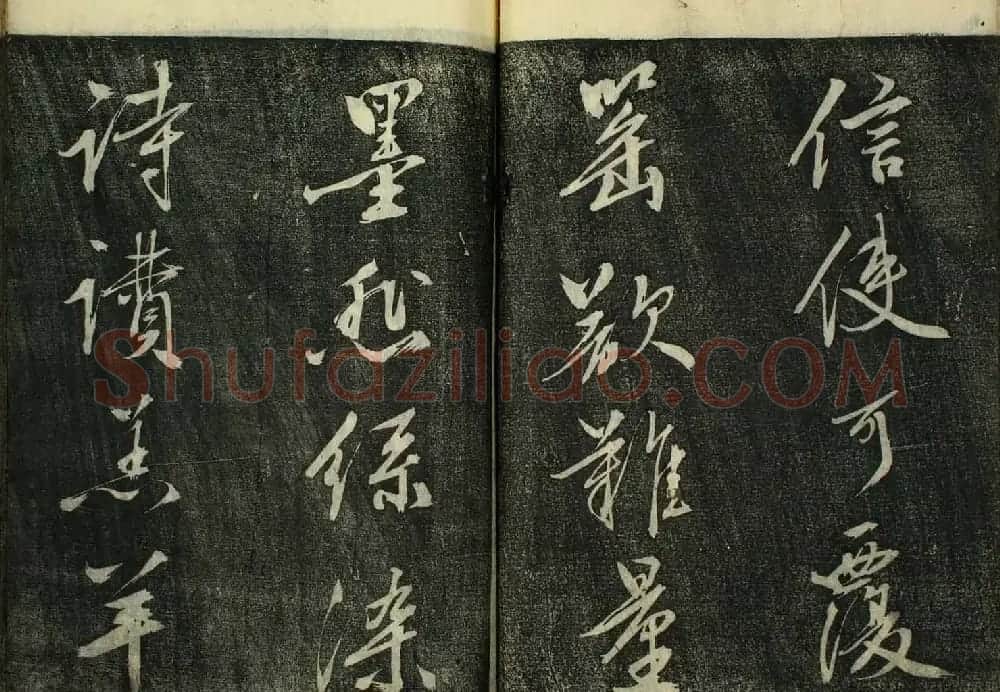 信使可覆
器欲難量
墨悲絲染
詩讚羔羊
Shufaziliao.COM